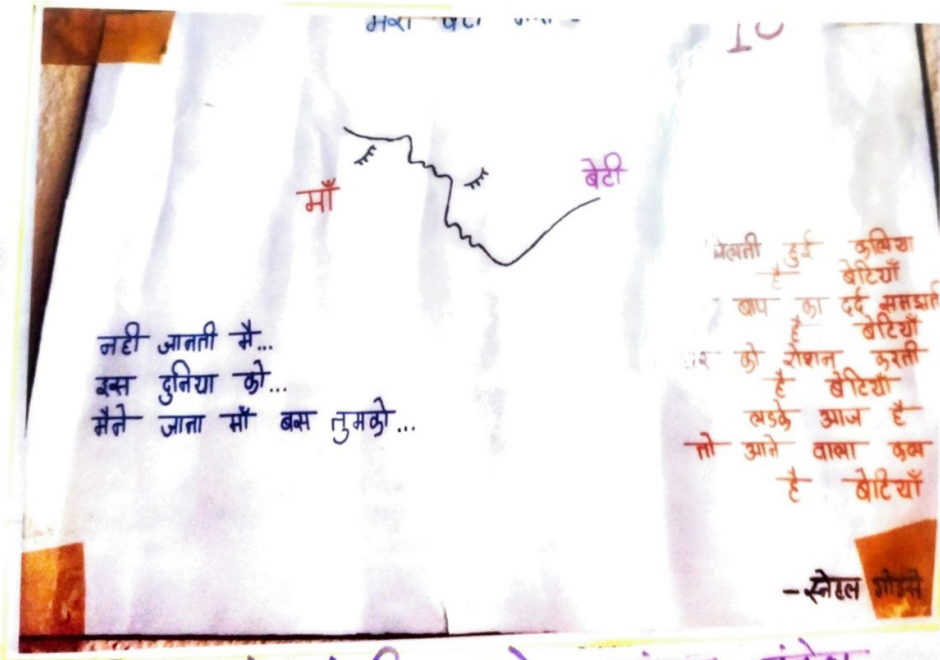 10
माँ
बेटी
नही जानती मै...
इस दुनिया को...
मैने जाना माँ बस तुमको...
हुई कलिया
है बेटियाँ
बाप का दर्द समझती
है बेटियाँ
को रोशन करती
है बेटियाँ
लडके आज है
तो आने वाला कल
है बेटियाँ
- स्नेहल गोडसे